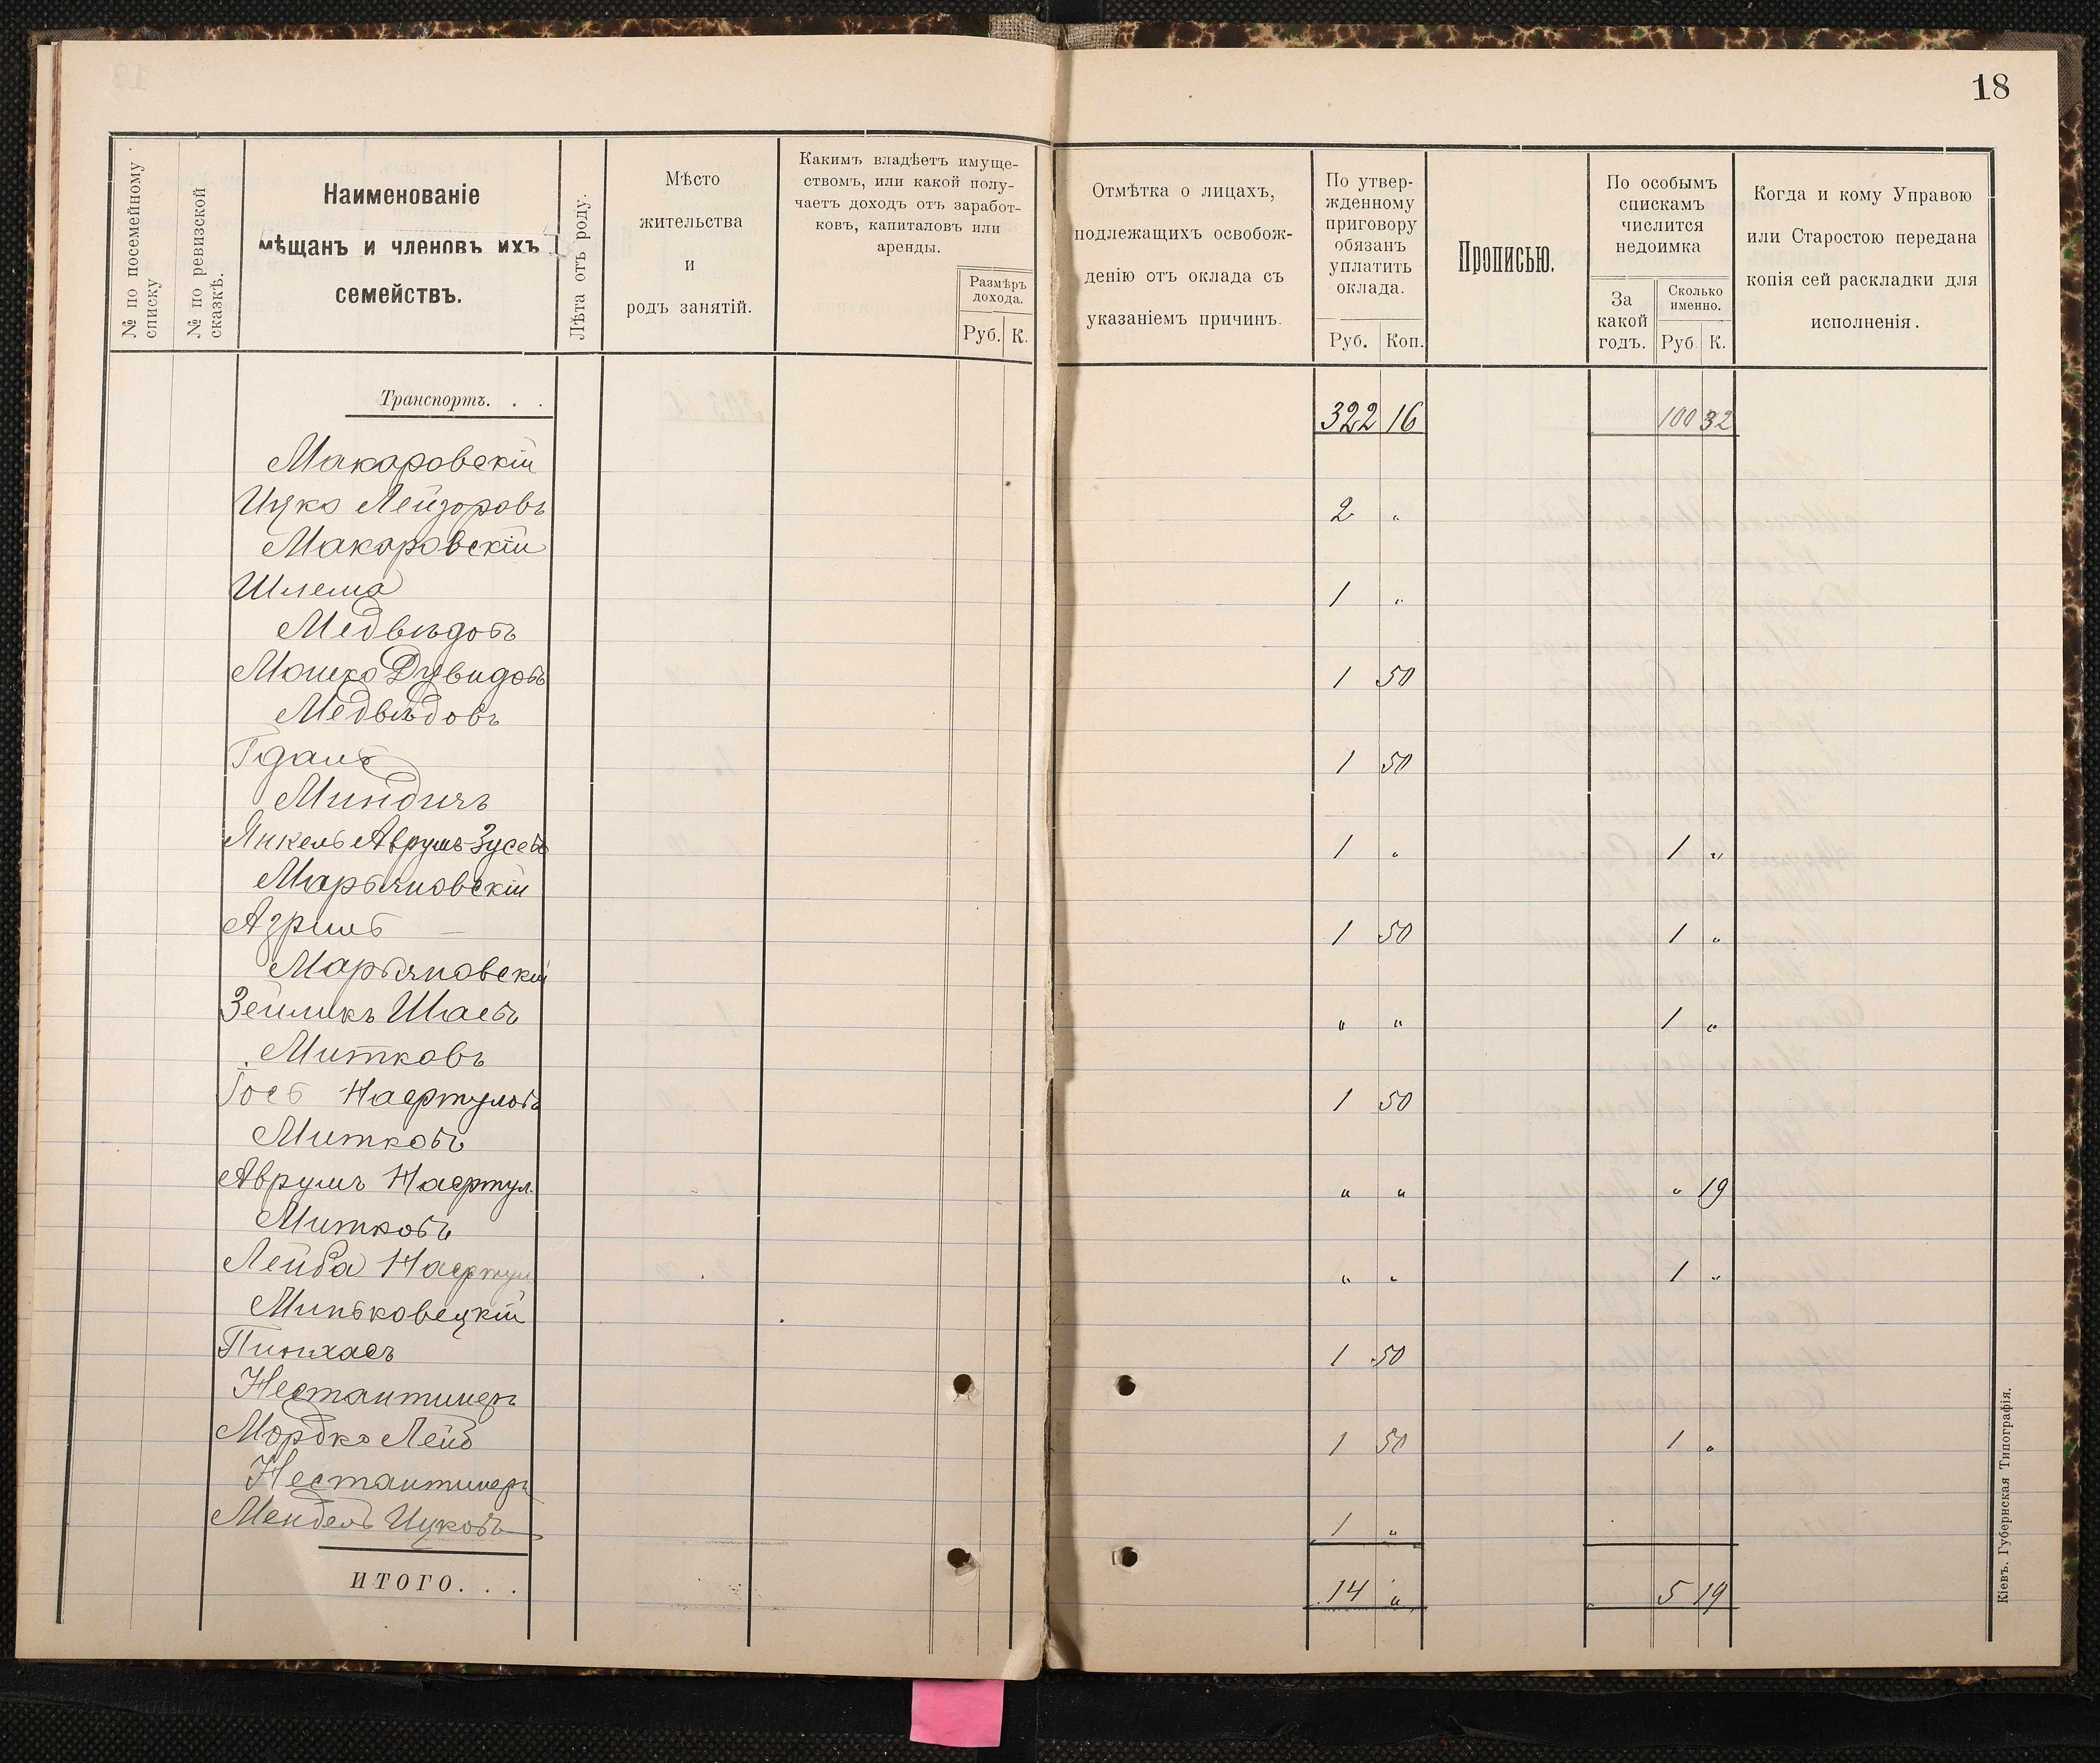 18
№ по посемейному
списку
№ по ревизской
сказкѣ.
Наименованіе
мѣщанъ и членовъ ихъ
семействъ.
Лѣта отъ роду.
Мѣсто
жительства
и
родъ занятій.
Какимъ владѣетъ имуще-
ствомъ, или какой полу-
чаетъ доходъ отъ заработ-
ковъ, капиталовъ или
аренды.
Размѣръ
дохода.
Руб. К.
Отмѣтка о лицахъ,
подлежащихъ освобож-
денію отъ оклада съ
указаніемъ причинъ.
По утвер-
жденному
приговору
обязанъ
уплатить
оклада.
Руб. Коп.
Прописью.
По особымъ
спискамъ
числится
недоимка
За
какой
годъ.
Сколько
именно.
Руб. К.
Когда и кому Управою
или Старостою передана
копія сей раскладки для
исполненія.
Транспортъ. . . 322 16 100 32
Макаровскій
Ицко Лейзоровъ 2 „
Макаровскій
Шлема 1 „
Медвѣдовъ
Мошко Дувидовъ 1 50
Медвѣдовъ
Гдаль 1 50
Миндичъ
Янкель Аврумъ-Зусевъ 1 „ 1 „
Марьяновскій
Азриль 1 50 1 „
Марьяновскій
Зейликъ Шаевъ „ „ 1 „
Митковъ
Іось Нафтуловъ 1 50
Митковъ
Аврумъ Нафтул. „ „ „ 19
Митковъ
Лейба Нафтул „ „ 1 „
Миньковецкій
Пинхасъ 1 50
Нестантинеръ
Мордко Лейб 1 50 1 „
Нестантинеръ
Мендель Ицковъ 1 „
ИТОГО. . . 14 „ 5 19
Кіевъ. Губернская Типографія.